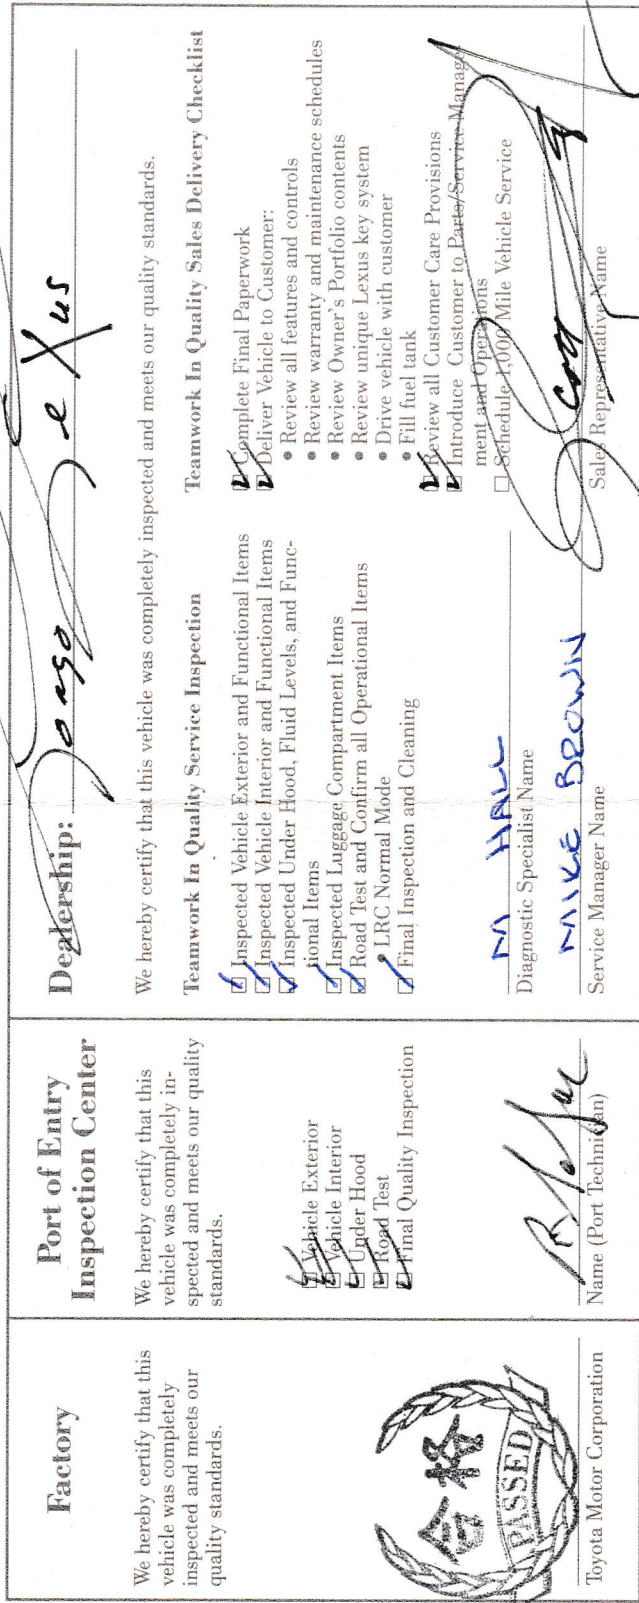 Factory
We hereby certify that this
vehicle was completely
inspected and meets our
quality standards.
合格
PASSED
Toyota Motor Corporation
Port of Entry
Inspection Center
We hereby certify that this
vehicle was completely in-
spected and meets our quality
standards.
Vehicle Exterior
Vehicle Interior
Under Hood
Road Test
Final Quality Inspection
Name (Port Technician)
Dealership: Longo Lexus
We hereby certify that this vehicle was completely inspected and meets our quality standards.
Teamwork In Quality Service Inspection
Inspected Vehicle Exterior and Functional Items
Inspected Vehicle Interior and Functional Items
Inspected Under Hood, Fluid Levels, and Func-
tional Items
Inspected Luggage Compartment Items
Road Test and Confirm all Operational Items
• LRC Normal Mode
Final Inspection and Cleaning
M HALL
Diagnostic Specialist Name
MIKE BROWN
Service Manager Name
Teamwork In Quality Sales Delivery Checklist
Complete Final Paperwork
Deliver Vehicle to Customer:
• Review all features and controls
• Review warranty and maintenance schedules
• Review Owner's Portfolio contents
• Review unique Lexus key system
• Drive vehicle with customer
• Fill fuel tank
Review all Customer Care Provisions
Introduce Customer to Parts/Service Manage-
ment and Operations
Schedule 1,000 Mile Vehicle Service
Scott
Sales Representative Name